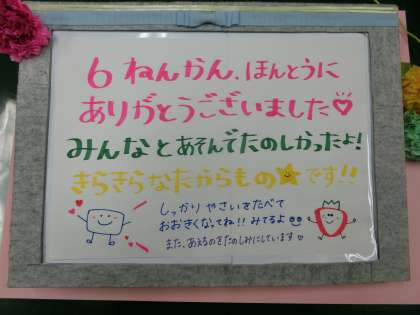 6ねんかん、ほんとうに
ありがとうございました♡
みんなとあそんでたのしかったよ!
きらきらなたからもの★です!!
しっかりやさいをたべて
おおきくなってね!!みてるよ
また、あえるのをたのしみにしています♡